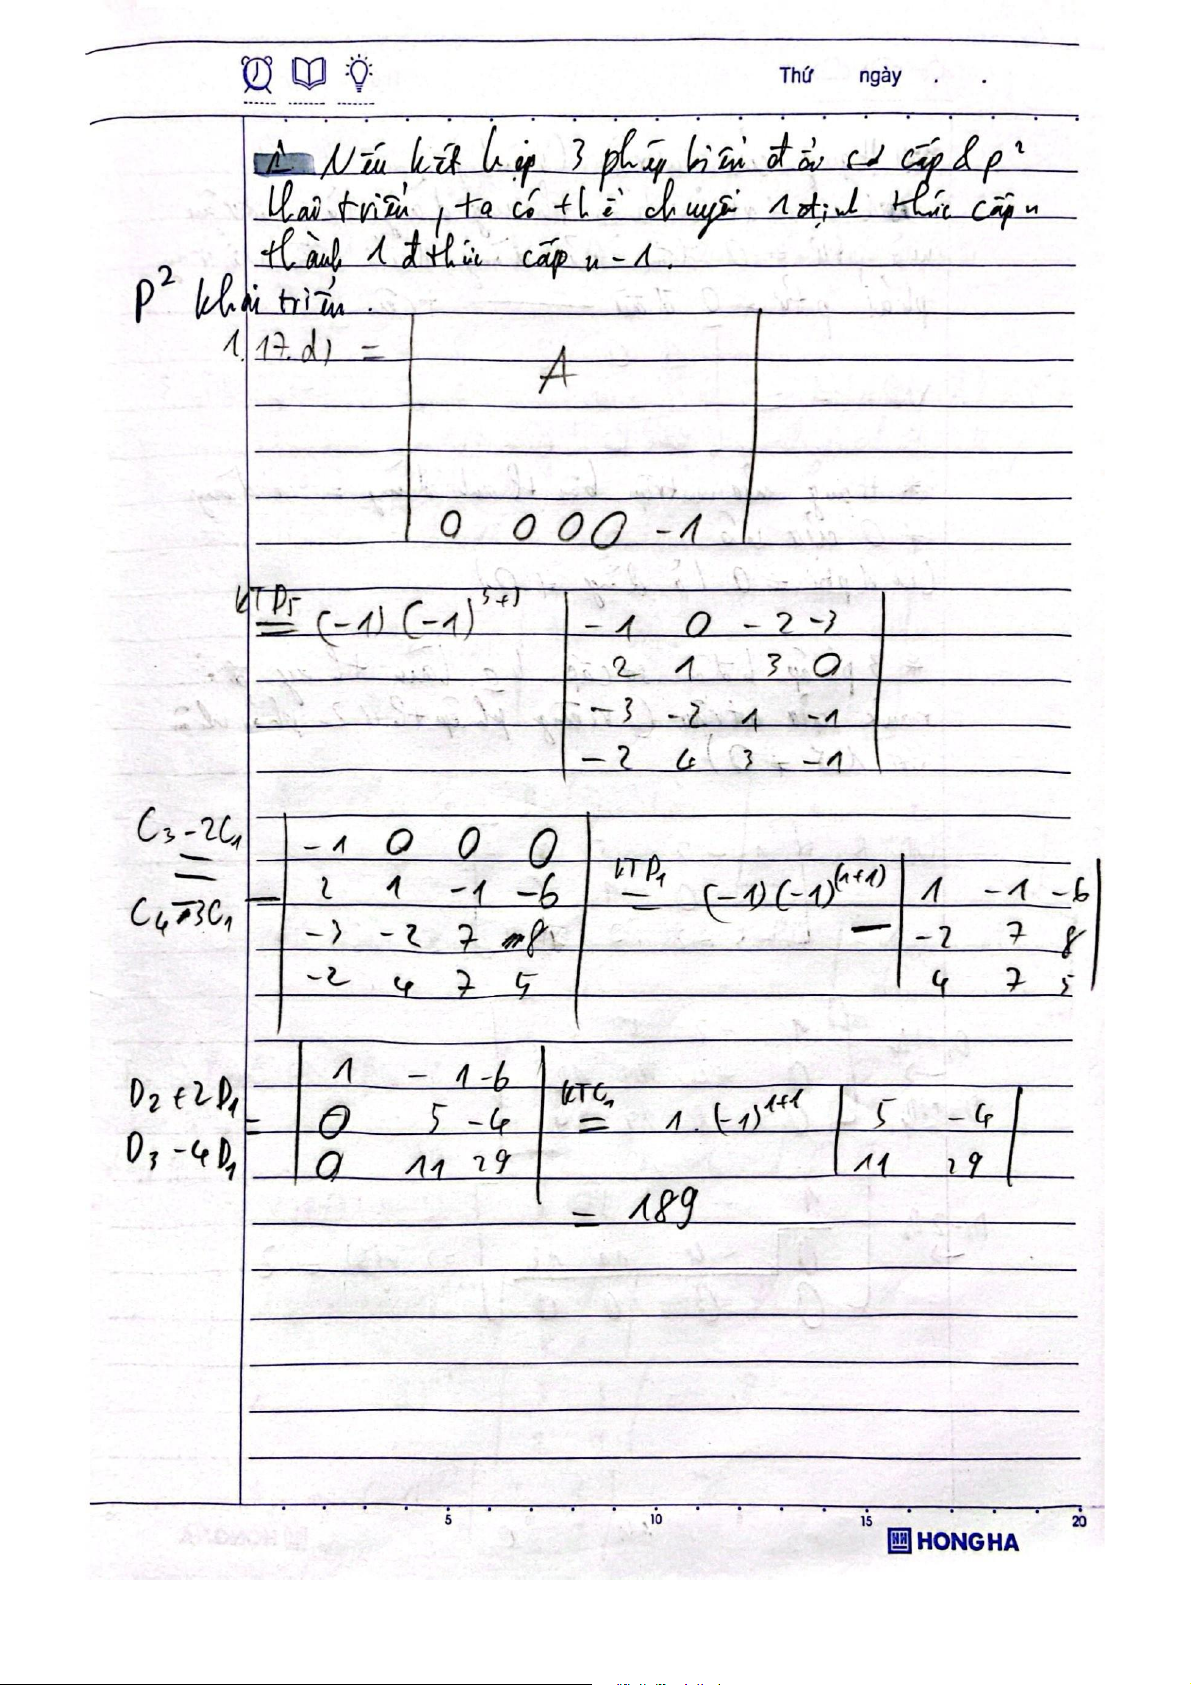 Thứ ngày . .
1 Nếu kết hợp 3 phép biến đổi sơ cấp & p²
khai triển, ta có thể chuyển 1 định thức cấp n
thành 1 đ thức cấp n - 1.
P² khai triển.
1.17.d) =
A
0 0 0 0 -1
KTD5 = (-1) (-1)^5+5
-1 0 -2 -3
2 1 3 0
-3 -2 1 -1
-2 4 3 -1
C3 - 2C1
=
C4 - 3C1
-
-1 0 0 0
2 1 -1 -6
-3 -2 7 8
-2 4 7 5
KTD1 = (-1)(-1)^(1+1)
-
1 -1 -6
-2 7 8
4 7 5
D2 + 2D1
=
D3 - 4D1
1 -1 -6
0 5 -4
0 11 29
KTC1 = 1.(-1)^1+1
5 -4
11 29
= 189
5 10 15 20
HONG HA